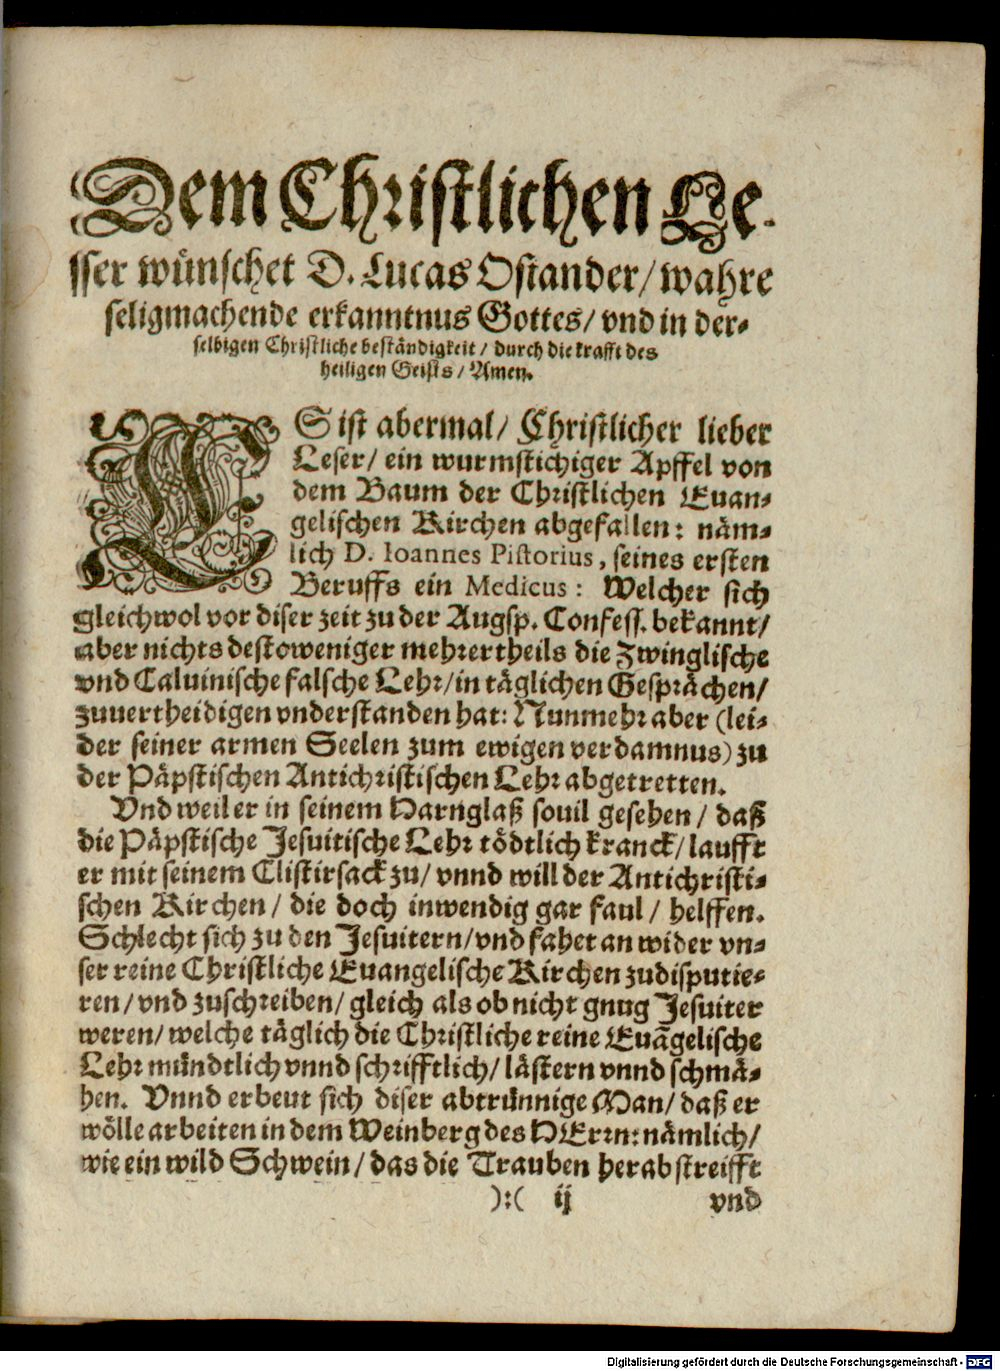 Dem Christlichen Le-
sser wünschet D. Lucas Osiander/ wahre
seligmachende erkanntnus Gottes/ vnd in der-
selbigen Christliche beständigkeit/ durch die krafft des
heiligen Geists/ Amen.
ES ist abermal/ Christlicher lieber
Leser/ ein wurmstichiger Apffel von
dem Baum der Christlichen Euan-
gelischen Kirchen abgefallen: näm-
lich D. Ioannes Pistorius, seines ersten
Beruffs ein Medicus: Welcher sich
gleichwol vor diser zeit zu der Augsp. Confess. bekannt/
aber nichts destoweniger mehrertheils die Zwinglische
vnd Caluinische falsche Lehr/ in täglichen Gesprächen/
zuuertheidigen vnderstanden hat: Nunmehr aber (lei-
der seiner armen Seelen zum ewigen verdamnus) zu
der Päpstischen Antichristischen Lehr abgetretten.
Vnd weil er in seinem Harnglaß souil gesehen/ daß
die Päpstische Jesuitische Lehr tödtlich kranck/ laufft
er mit seinem Clistirsack zu/ vnnd will der Antichristi-
schen Kirchen/ die doch inwendig gar faul/ helffen.
Schlecht sich zu den Jesuitern/ vnd fahet an wider vn-
ser reine Christliche Euangelische Kirchen zudisputie-
ren/ vnd zuschreiben/ gleich als ob nicht gnug Jesuiter
weren/ welche täglich die Christliche reine Euãgelische
Lehr mündtlich vnnd schrifftlich/ lästern vnnd schmä-
hen. Vnnd erbeut sich diser abtrünnige Man/ daß er
wölle arbeiten in dem Weinberg des HErrn: nämlich/
wie ein wild Schwein/ das die Trauben herab streifft
):( ij vnd
Digitalisierung gefördert durch die Deutsche Forschungsgemeinschaft - DFG